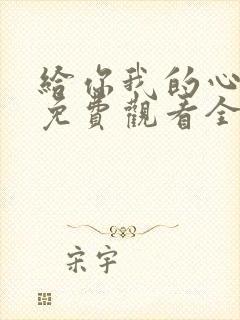 給你我的心
免費觀看全
宋宇